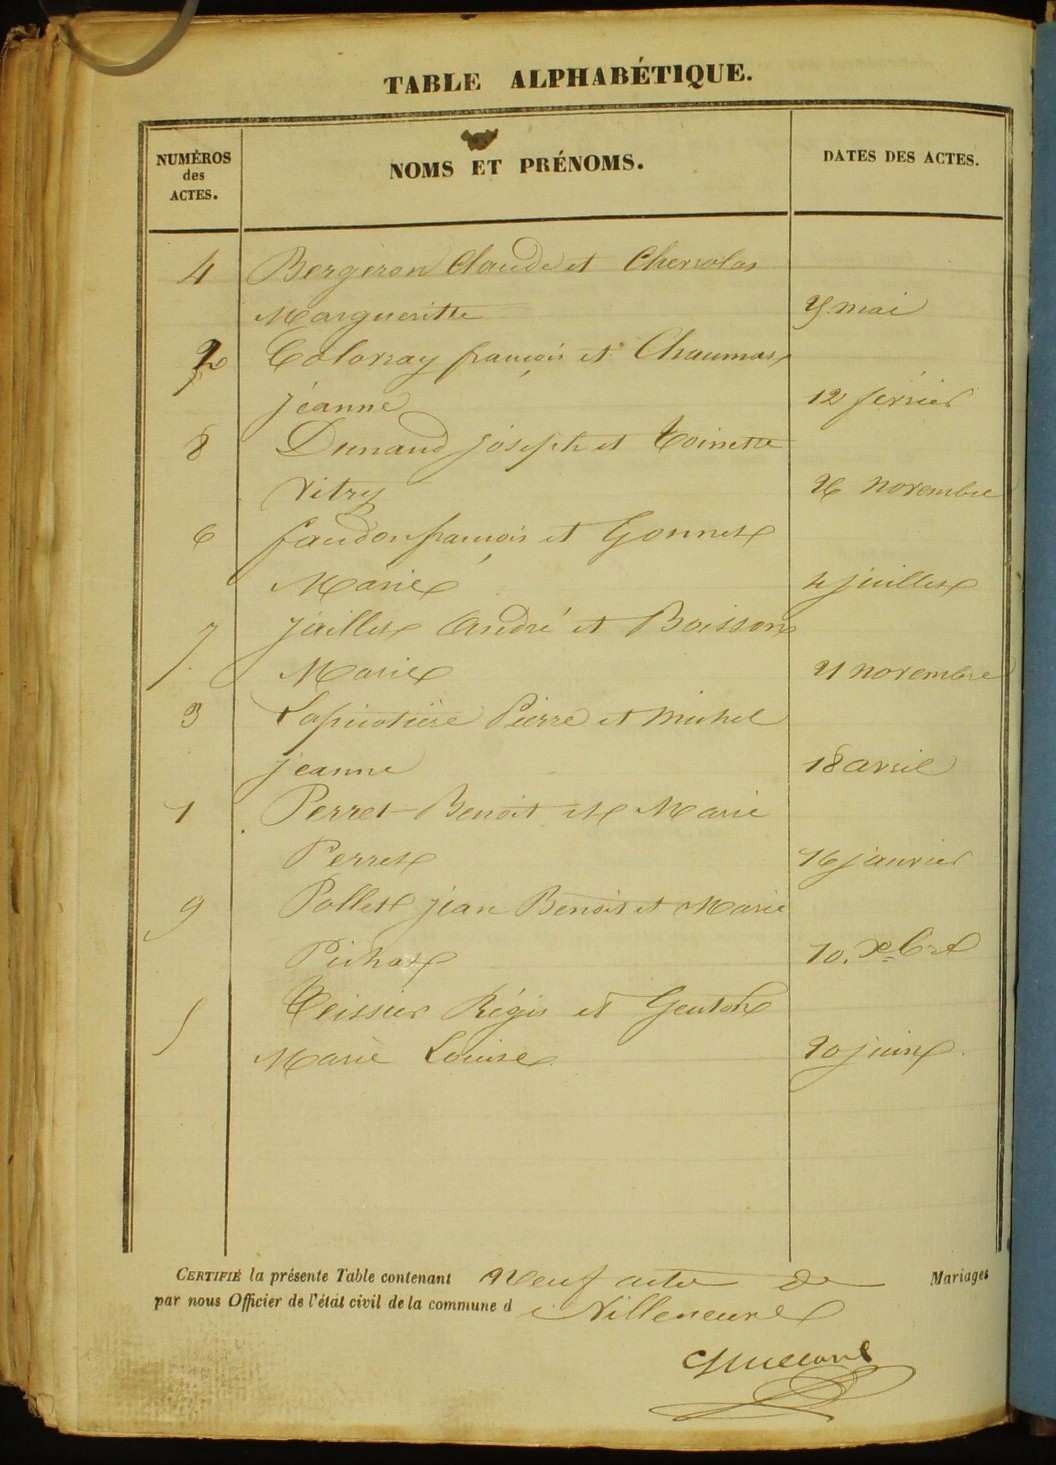 TABLE ALPHABÉTIQUE.
NUMÉROS des ACTES. NOMS ET PRÉNOMS. DATES DES ACTES.
4 Bergeron Claude et
Margueritte mai
2 françois et Chaumas
jéanne 12 février
8 Dunand joseph et Toinette
Vitry 26 novembre
6 faudon françois et Gonnet
Marie 4 juillet
7 jaillet André et Boisson
Marie 21 novembre
3 Lapicotière Pierre et michel
jeanne 18 avril
1 Perret Benoit et Marie
Perret 16 janvier
9 Pollet jean Benoit et Marie
Pichat 10. Xbre
5 Teissier Régis et Genton
Marie Louise 20 juin
CERTIFIÉ la présente Table contenant Neuf actes de Mariages
par nous Officier de l'état civil de la commune d e Villeneuve